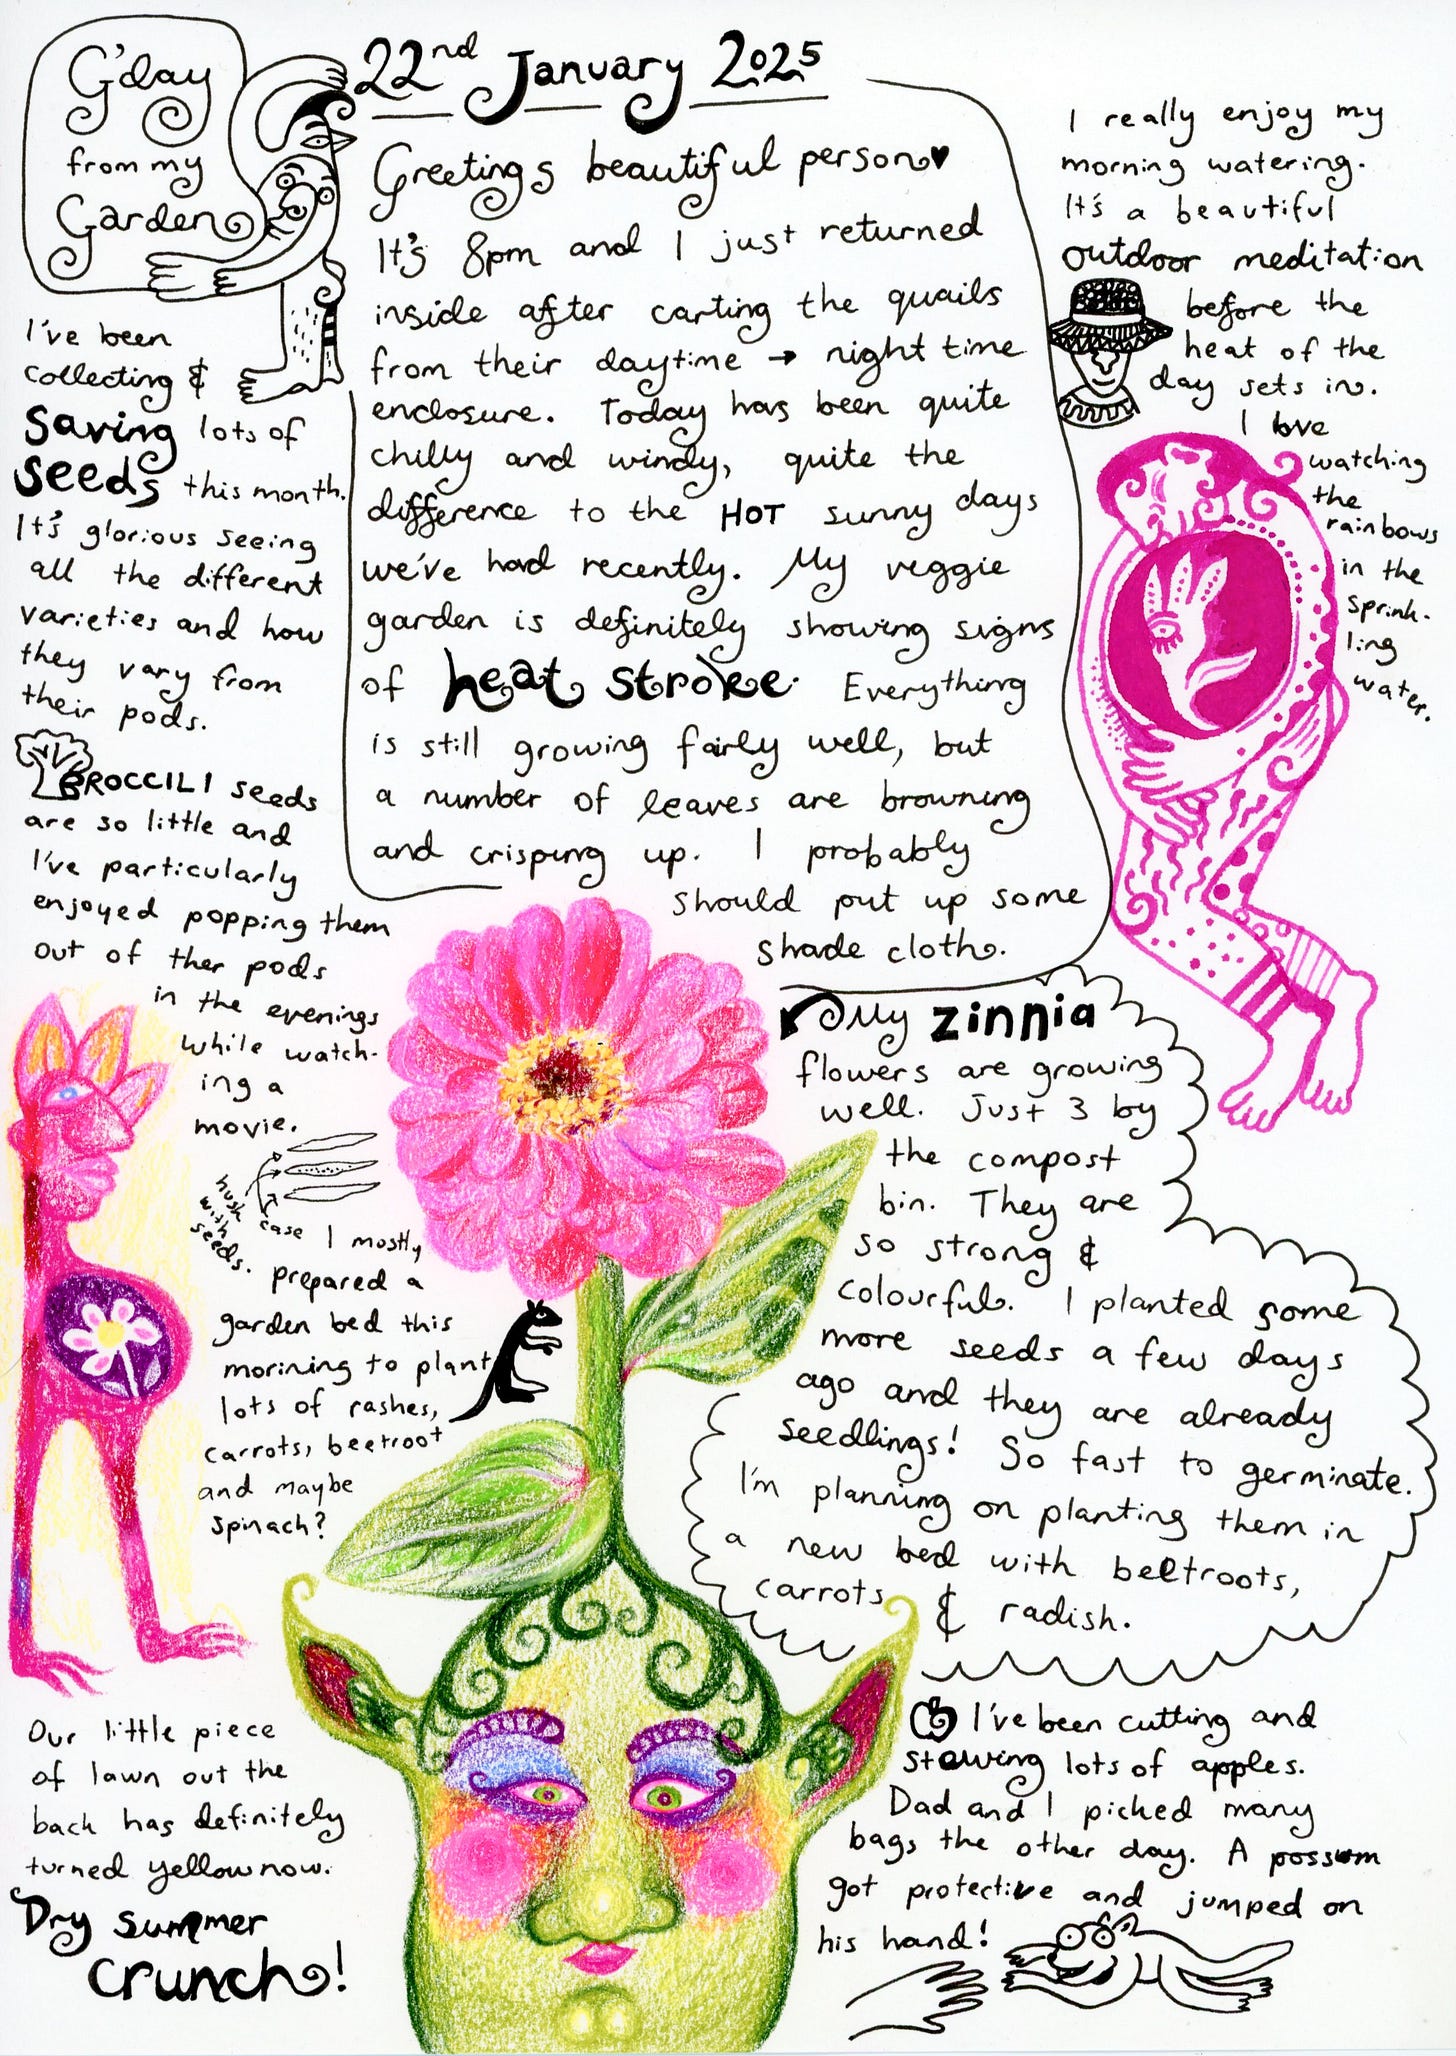 G'day
from my
Garden
22nd January 2025
Greetings beautiful person♥
It's 8pm and I just returned
inside after carting the quails
from their daytime → night time
enclosure. Today has been quite
chilly and windy, quite the
difference to the HOT sunny days
we've had recently. My veggie
garden is definitely showing signs
of heat stroke. Everything
is still growing fairly well, but
a number of leaves are browning
and crisping up. I probably
should put up some
shade cloth.
I really enjoy my
morning watering.
It's a beautiful
outdoor meditation
before the
heat of the
day sets in.
I love
watching
the
rainbows
in the
sprink-
ling
water.
I've been
collecting &
saving lots of
seeds this month.
It's glorious seeing
all the different
varieties and how
they vary from
their pods.
BROCCILI seeds
are so little and
I've particularly
enjoyed popping them
out of ther pods
in the evenings
while watch-
ing a
movie.
husk
with
seeds.
case
I mostly
prepared a
garden bed this
morining to plant
lots of rashes,
carrots, beetroot
and maybe
spinach?
My zinnia
flowers are growing
well. Just 3 by
the compost
bin. They are
so strong &
colourful. I planted some
more seeds a few days
ago and they are already
seedlings! So fast to germinate.
I'm planning on planting them in
a new bed with beetroots,
carrots & radish.
Our little piece
of lawn out the
back has definitely
turned yellow now.
Dry summer
crunch!
I've been cutting and
stewing lots of apples.
Dad and I picked many
bags the other day. A possum
got protective and jumped on
his hand!